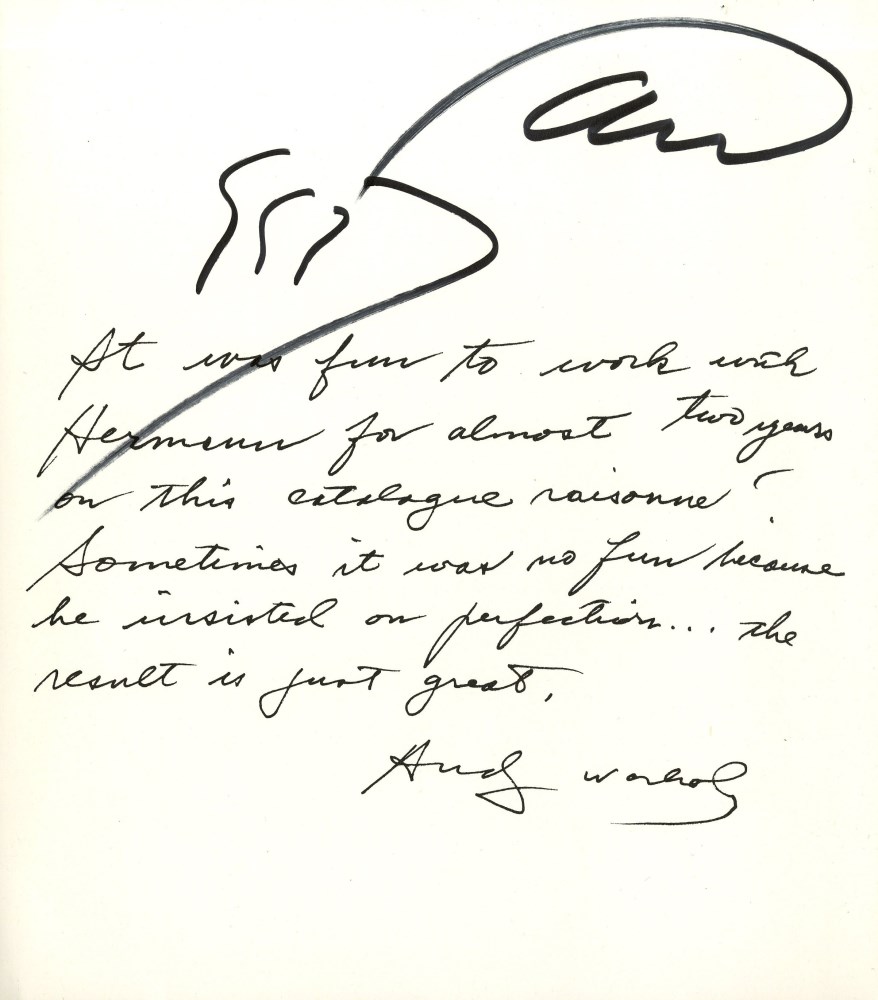 It was fun to work with
Hermann for almost two years
on this catalogue raisonne'
Sometimes it was no fun because
he insisted on perfection... the
result is just great.
Andy Warhol